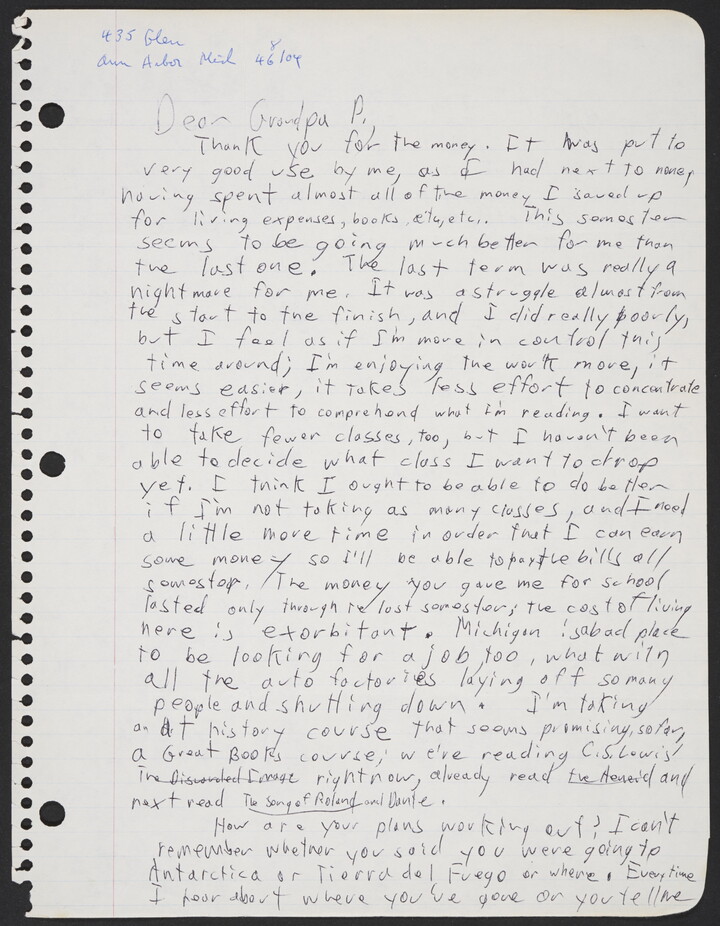 435 Glen
Ann Arbor Mich 48104
Dear Grandpa P,
Thank you for the money. It was put to
very good use by me, as I had next to none,
having spent almost all of the money I saved up
for living expenses, books, etc, etc.. This semester
seems to be going much better for me than
the last one. The last term was really a
nightmare for me. It was a struggle almost from
the start to the finish, and I did really poorly,
but I feel as if I'm more in control this
time around; I'm enjoying the work more, it
seems easier, it takes less effort to concentrate
and less effort to comprehend what I'm reading. I want
to take fewer classes, too, but I haven't been
able to decide what class I want to drop
yet. I think I ought to be able to do better
if I'm not taking as many classes, and I need
a little more time in order that I can earn
some money so I'll be able to pay the bills all
semester. The money you gave me for school
lasted only through the last semester; the cost of living
here is exorbitant. Michigan is a bad place
to be looking for a job, too, what with
all the auto factories laying off so many
people and shutting down. I'm taking
an Art history course that seems promising, so far,
a Great Books course; we're reading C.S. Lewis'
The Discarded Image right now, already read the Aeneid and
next read The Song of Roland and Dante.
How are your plans working out? I can't
remember whether you said you were going to
Antarctica or Tierra del Fuego or where. Every time
I hear about where you've gone or you tell me